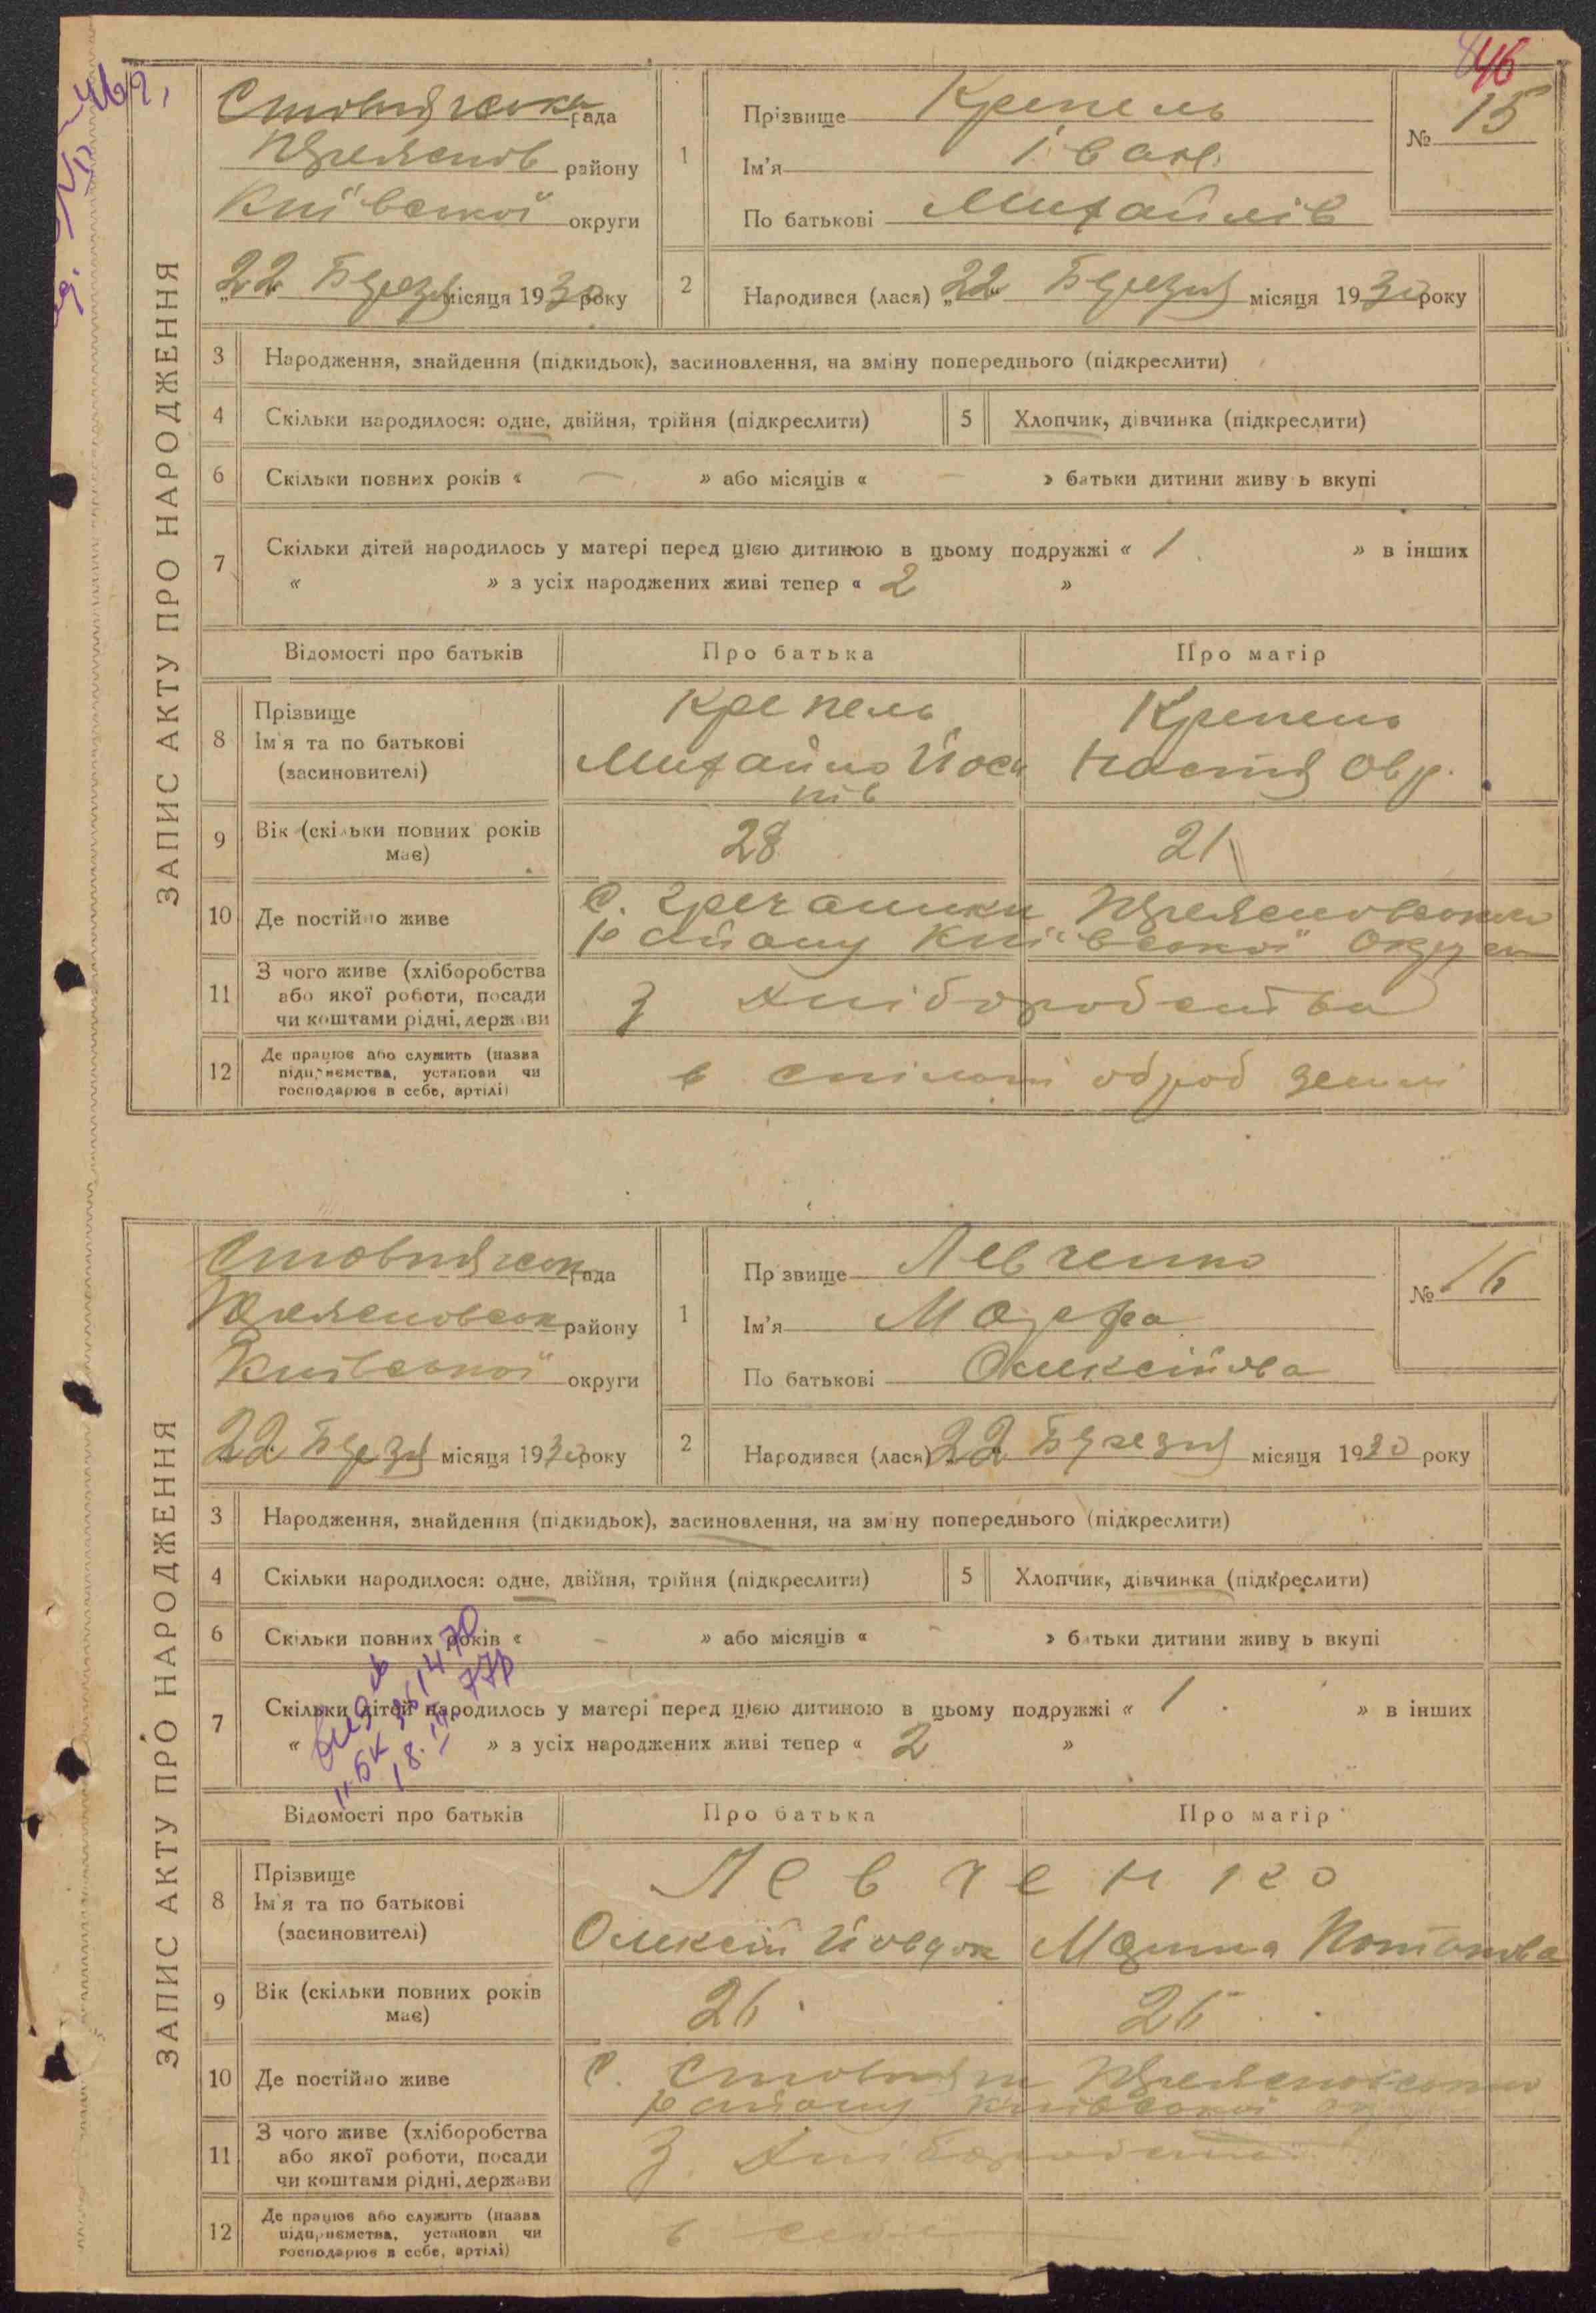 46
ЗАПИС АКТУ ПРО НАРОДЖЕННЯ
Стовпязька рада
району
Київської округи
22 Березня місяця 1930 року
1
Прізвище Крепель
Ім'я Іван
По батькові Михайлів
№ 15
2
Народився (лася) „22" Березня місяця 1930 року
3 Народження, знайдення (підкидьок), засиновлення, на зміну попереднього (підкреслити)
4 Скільки народилося: одне, двійня, трійня (підкреслити) 5 Хлопчик, дівчинка (підкреслити)
6 Скільки повних років « — » або місяців « — » батьки дитини живуть вкупі
7 Скільки дітей народилось у матері перед цією дитиною в цьому подружжі « 1 » в інших
« » з усіх народжених живі тепер « 2 »
Відомості про батьків Про батька Про матір
8 Прізвище Крепель Крепель
Ім'я та по батькові Михайло Йоси Настя Овр.
(засиновителі) пів
9 Вік (скільки повних років має) 28 21
10 Де постійно живе с. Гречаники
району Київської Округи
11 З чого живе (хліборобства
або якої роботи, посади з хліборобства
чи коштами рідні, держави
12 Де працює або служить (назва
підприємства, установи чи в спільні оброб землі
господарює в себе, артілі)
ЗАПИС АКТУ ПРО НАРОДЖЕННЯ
Стовпязьк рада
району
Київської округи
22 Березня місяця 1930 року
1
Прізвище Левченко
Ім'я Мазефа
По батькові Олексійова
№ 16
2
Народився (лася) 22 Березня місяця 1930 року
3 Народження, знайдення (підкидьок), засиновлення, на зміну попереднього (підкреслити)
4 Скільки народилося: одне, двійня, трійня (підкреслити) 5 Хлопчик, дівчинка (підкреслити)
6 Скільки повних років « — » або місяців « — » батьки дитини живуть вкупі
7 Скільки дітей народилось у матері перед цією дитиною в цьому подружжі « 1 » в інших
« » з усіх народжених живі тепер « 2 »
Відомості про батьків Про батька Про матір
8 Прізвище Левченко
Ім'я та по батькові Олексій Марина Потапова
(засиновителі)
9 Вік (скільки повних років має) 26 25
10 Де постійно живе с. Стовпяги
району Київської
11 З чого живе (хліборобства
або якої роботи, посади з хліборобства
чи коштами рідні, держави
12 Де працює або служить (назва
підприємства, установи чи в себе
господарює в себе, артілі)